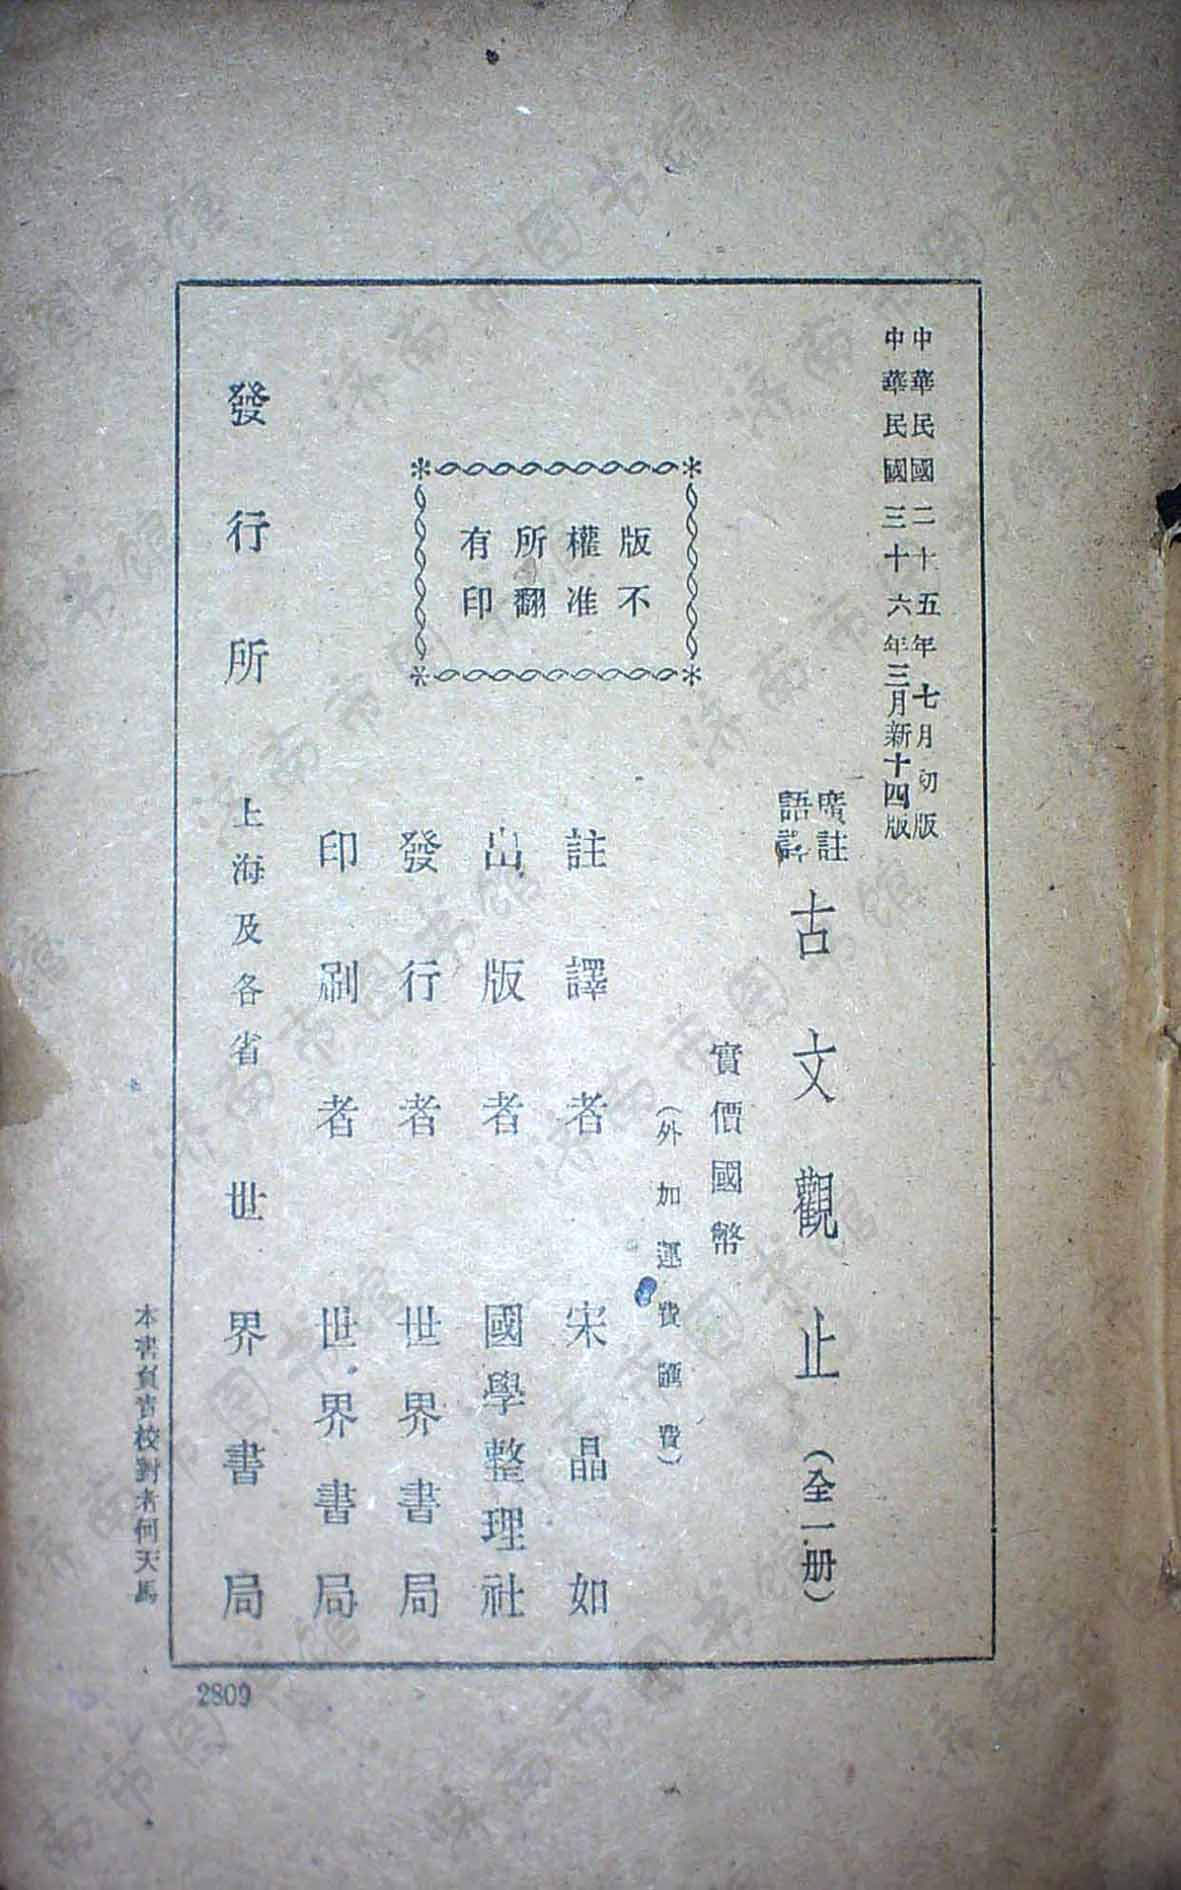 中華民國二十五年七月初版
中華民國三十六年三月新十四版
廣註
語譯
古文觀止（全一册）
實價國幣
（外加運費匯費）
版權所有
不准翻印
註譯者 宋晶如
出版者 國學整理社
發行者 世界書局
印刷者 世界書局
發行所 上海及各省 世界書局
本書負責校對者何天馬
2809
济南市图书馆